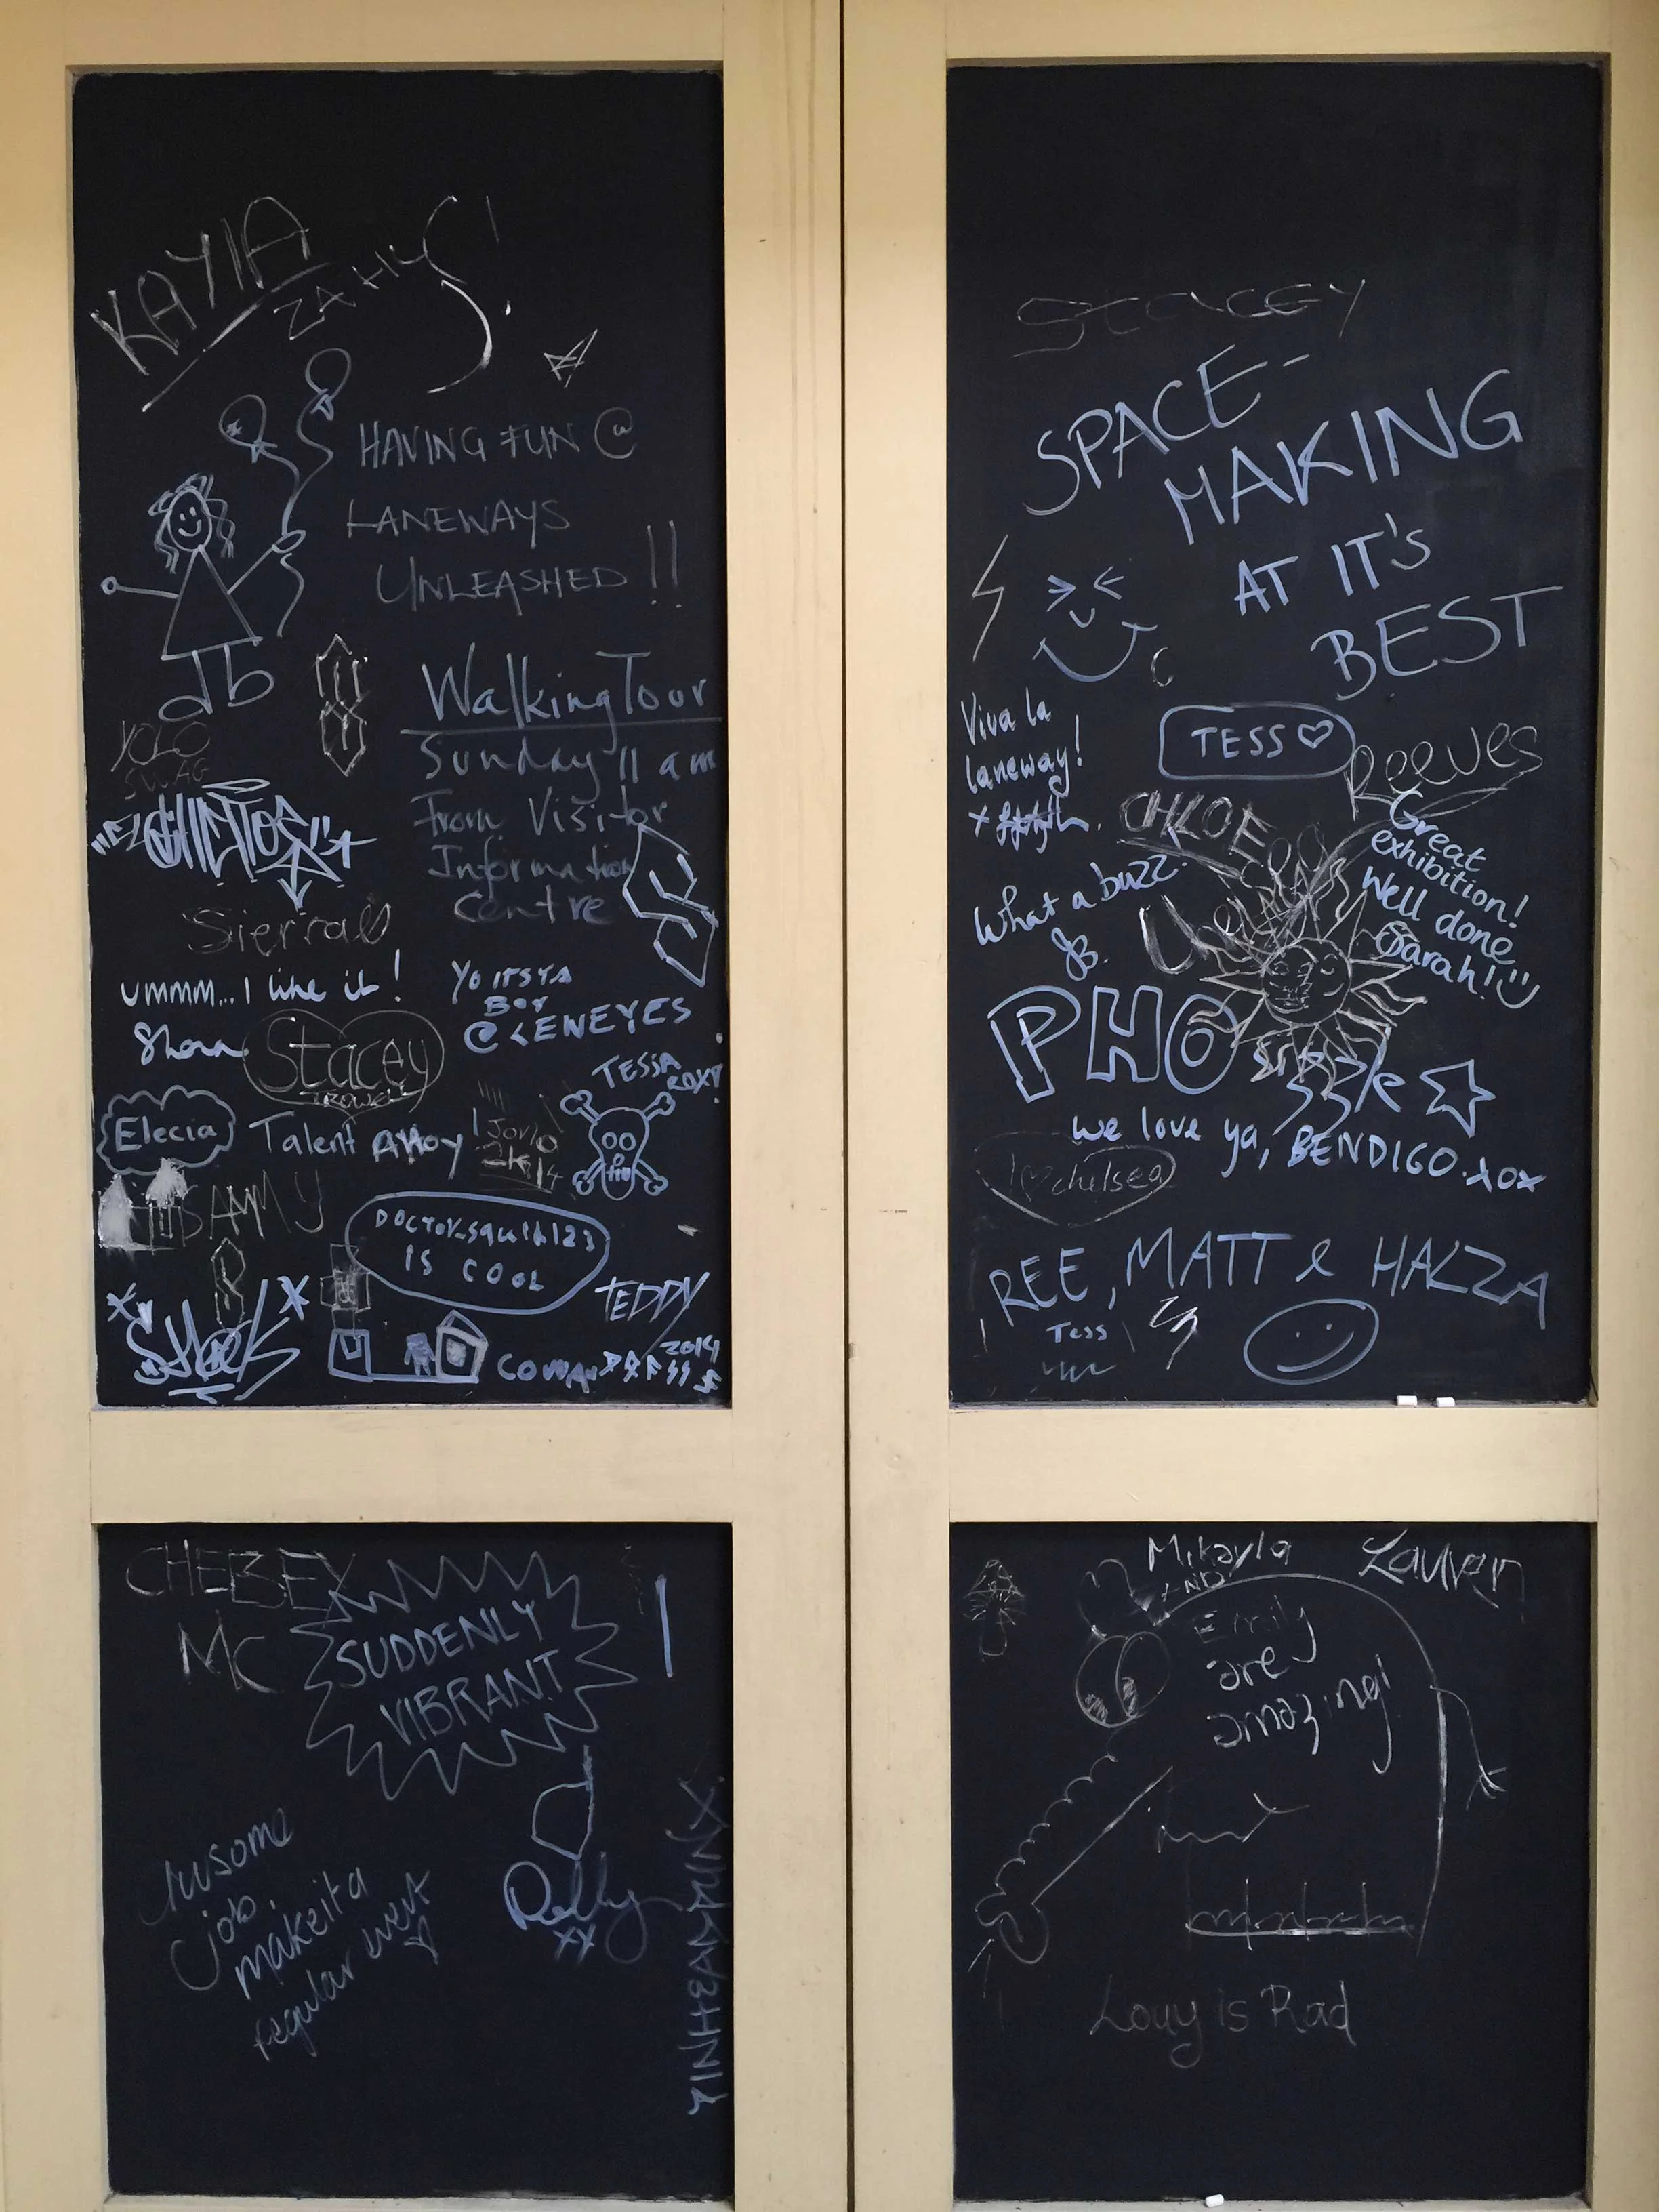 KAYIA
HAVING FUN @
LANEWAYS
UNLEASHED !!
Walking Tour
Sunday 11 am
From Visitor
Information
Centre
YOLO
SWAG
Sierra
ummm... I like it!
Shona
Stacey
TROWELL
YO ITS YA
BOY
@LEWEYES
TESSA
ROXY
Elecia
Talent AHOY
2K14
SAMMY
DOCTOR_squid123
IS COOL
TEDDY
2014
STACEY
SPACE-
MAKING
AT IT'S
BEST
Viva la
laneway!
TESS
Reeves
CHLOE
Great
exhibition!
Well done
Sarah!
What a buzz.
JB.
PHO
we love ya, BENDIGO. xox
I chelsea
REE, MATT & HAZZA
Tess
CHEBEY
MC
SUDDENLY
VIBRANT
Awsome
job.
make it a
regular event
xx
Mikayla
AND
Emily
are
amazing!
Lauren
Louy is Rad